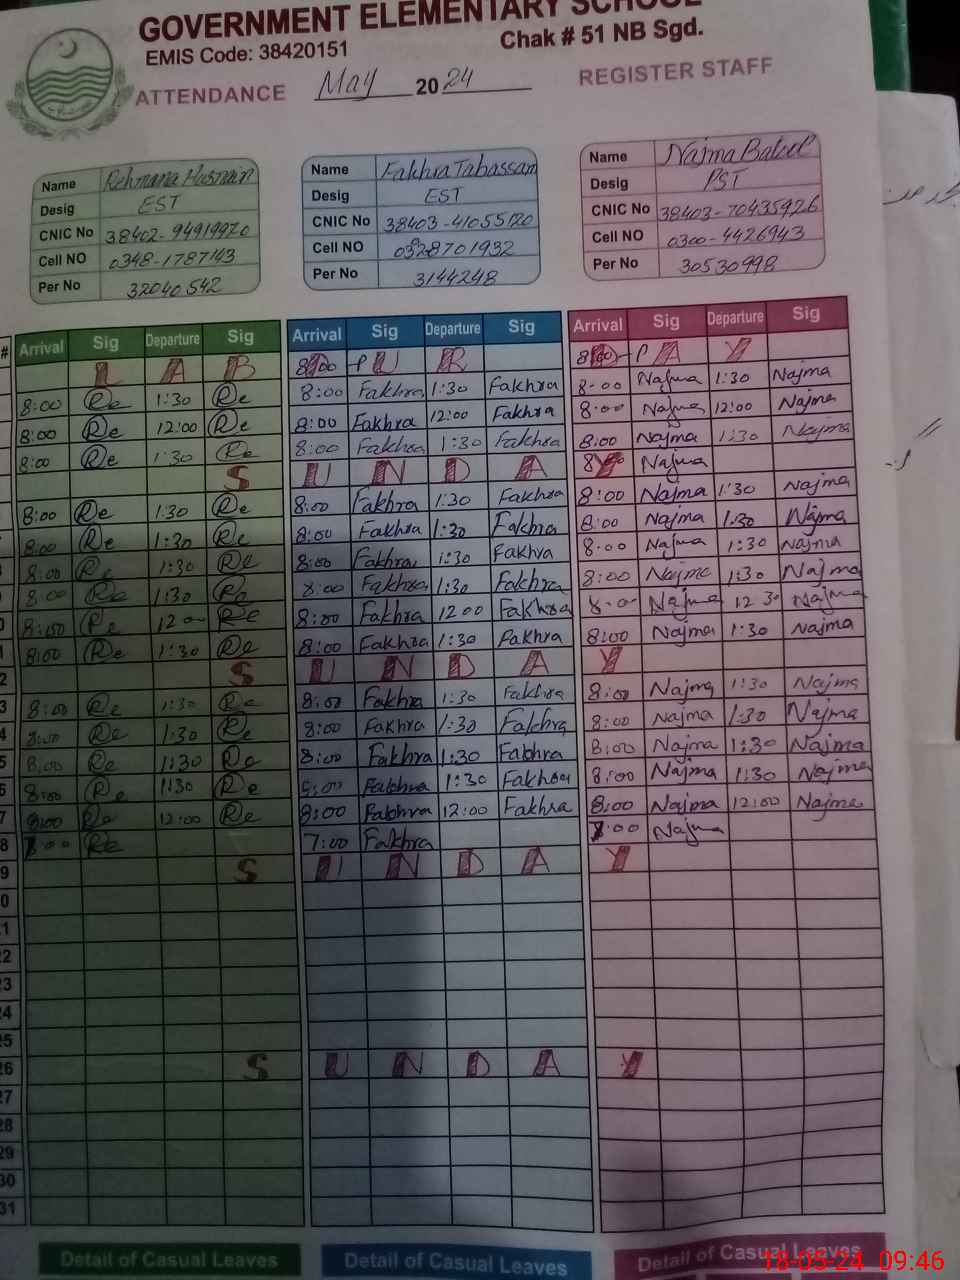 GOVERNMENT ELEMENTARY SCHOOL
EMIS Code: 38420151 Chak # 51 NB Sgd.
ATTENDANCE May 2024 REGISTER STAFF
Name Rehmana Hasnain Name Fakhra Tabassam Name Najma Batul
Desig EST Desig EST Desig PST
CNIC No 38402-94919970 CNIC No 38403-41055120 CNIC No 38403-70435926
Cell NO 0348-1787143 Cell NO 0328701932 Cell NO 0300-4426943
Per No 32040542 Per No 3144248 Per No 30530998
# Arrival Sig Departure Sig Arrival Sig Departure Sig Arrival Sig Departure Sig
L A B 8:00 P U R 8:00 P A Y
8:00 Re 1:30 Re 8:00 Fakhra 1:30 Fakhra 8:00 Najma 1:30 Najma
8:00 Re 12:00 Re 8:00 Fakhra 12:00 Fakhra 8:00 Najma 12:00 Najma
8:00 Re 1:30 Re 8:00 Fakhra 1:30 Fakhra 8:00 Najma 1:30 Najma
S U N D A Y Najma
8:00 Re 1:30 Re 8:00 Fakhra 1:30 Fakhra 8:00 Najma 1:30 Najma
8:00 Re 1:30 Re 8:00 Fakhra 1:30 Fakhra 8:00 Najma 1:30 Najma
8:00 Re 1:30 Re 8:00 Fakhra 1:30 Fakhra 8:00 Najma 1:30 Najma
8:00 Re 1:30 Re 8:00 Fakhra 1:30 Fakhra 8:00 Najma 1:30 Najma
8:00 Re 12:00 Re 8:00 Fakhra 12:00 Fakhra 8:00 Najma 12:30 Najma
8:00 Re 1:30 Re 8:00 Fakhra 1:30 Fakhra 8:00 Najma 1:30 Najma
2 S U N D A Y
3 8:00 Re 1:30 Re 8:00 Fakhra 1:30 Fakhra 8:00 Najma 1:30 Najma
4 8:00 Re 1:30 Re 8:00 Fakhra 1:30 Fakhra 8:00 Najma 1:30 Najma
5 8:00 Re 1:30 Re 8:00 Fakhra 1:30 Fakhra 8:00 Najma 1:30 Najma
8:00 Re 1:30 Re 8:00 Fakhra 1:30 Fakhra 8:00 Najma 1:30 Najma
7 8:00 Re 12:00 Re 8:00 Fakhra 12:00 Fakhra 8:00 Najma 12:00 Najma
8 7:00 Re 7:00 Fakhra 7:00 Najma
9 S U N D A Y
0
1
22
23
24
25
26 S U N D A Y
27
28
29
30
31
Detail of Casual Leaves Detail of Casual Leaves Detail of Casual Leaves
18-05-24 09:46